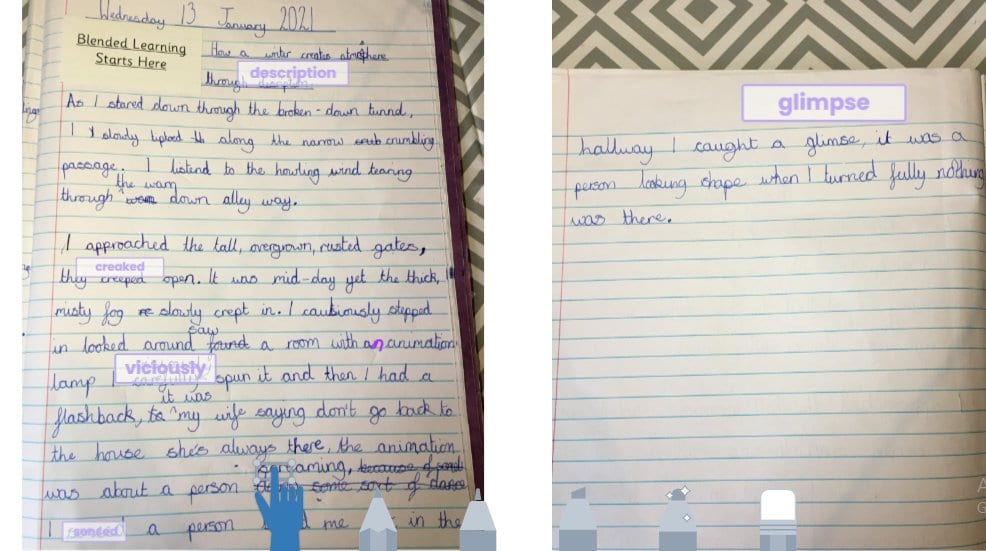 Wednesday 13 January 2021
Blended Learning
Starts Here
How a writer creates atmosphere
through description
description
As I stared down through the broken-down tunnel,
I slowly tiptoed along the narrow crumbling
passage. I listend to the howling wind tearing
the warn
through down alley way.
I approached the tall, overgrown, rusted gates,
creaked
they creeped open. It was mid-day yet the thick,
misty fog slowly crept in. I cautiously stepped
saw
in looked around found a room with an animation
lamp I viciously spun it and then I had a
it was
flashback, to my wife saying don't go back to
the house she's always there, the animation
screaming, because of
was about a person some sort of dance
I sensed a person me in the
glimpse
hallway I caught a glimse, it was a
person looking shape when I turned fully nothing
was there.